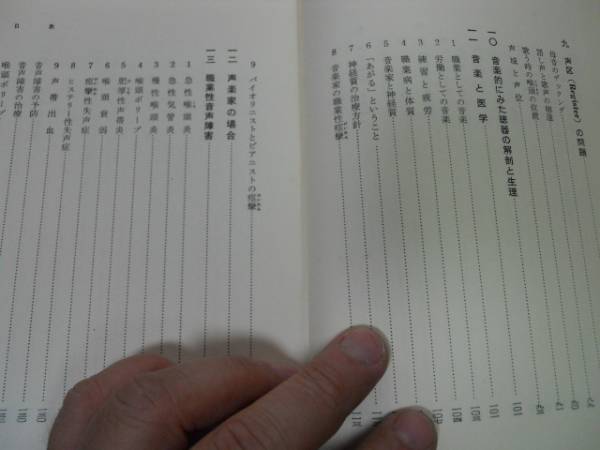 九 声区(Register)の問題
母音のデッキング
話し声と歌声の関連
歌う時の喉頭の位置
声域と声位
一〇 音楽的にみた聴器の解剖と生理
一一 音楽と医学
1 職業としての音楽
2 労働としての音楽
3 練習と疲労
4 職業病と体質
5 音楽家と神経質
6 「あがる」ということ
7 神経質の治療方針
8 音楽家の職業性痙攣
目次
9 バイオリニストとピアニストの痙攣
一二 声楽家の場合
一三 職業性音声障害
1 急性喉頭炎
2 急性気管炎
3 慢性喉頭炎
4 喉頭ポリープ
5 肥厚性声帯炎
6 喉頭衰弱
7 痙攣性失声症
8 ヒステリー性失声症
9 声帯出血
音声障害の予防
音声障害の治療
喉頭ポリープ